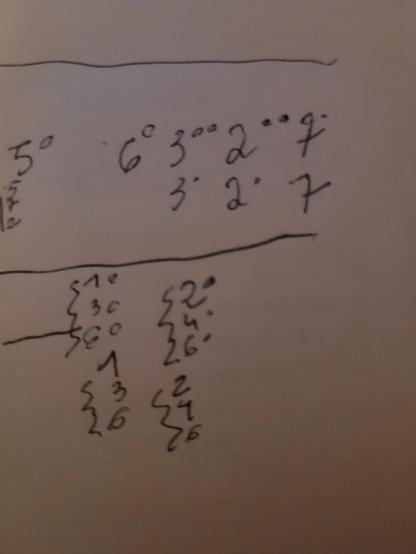 5° 6° 3°° 2°° 7°
3° 2° 7
{1° {2°
{3° {4°
{6° {6°
1
{3 {2
{6 {4
{6